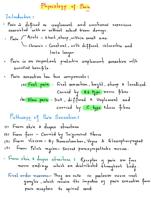 Physiology of Pain
Introduction:
• Pain is defined as unpleasant and emotional experience
associated with or without actual tissue damage.
• Pain Acute = Sharp, along with small area
Chronic = Constant, with diffused, intensive and
lasts longer
• Pain is an important protective mechanism associated with
potential benefits.
• Pain sensation has two components:
(1) Fast pain = Fast sensation, bright, sharp & localized
Carried by Aδ type nerve fibres
(2) Slow pain = Dull, diffused & unpleasant and
carried by C type nerve fibres
Pathways of Pain Sensation:
(1) From skin & deeper structures
(2) From face = Carried by Trigeminal Nerve
(3) From Viscera = By Sympathetic, Vagus & Glossopharyngeal
(4) From Pelvic region = Sacral parasympathetic nerves
From skin & deeper structures = Receptors of pain are free
nerve endings which are distributed throughout body
First order neurons = They are cells in posterior nerve root
ganglia, which receive the impulses of pain sensation from
pain receptors to spinal cord